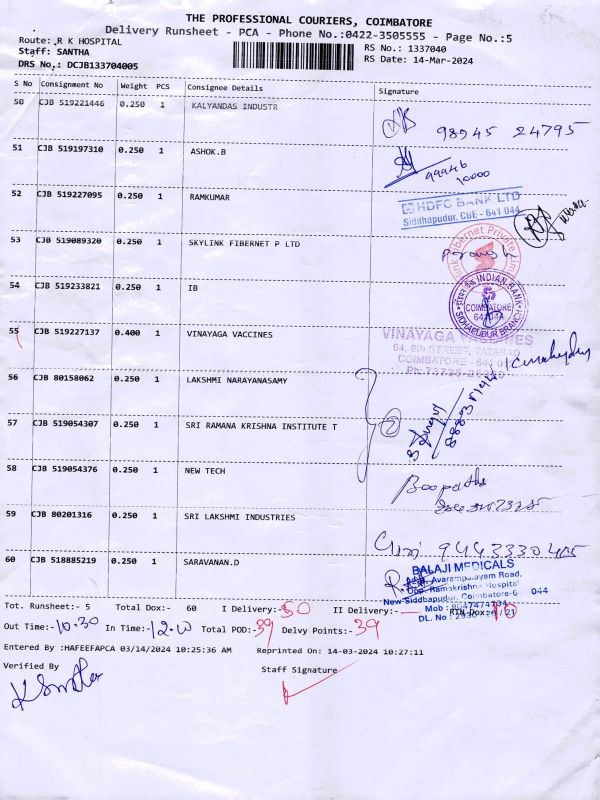 THE PROFESSIONAL COURIERS, COIMBATORE
Delivery Runsheet - PCA - Phone No.:0422-3505555 - Page No.:5
Route: R K HOSPITAL
Staff: SANTHA
DRS No.: DCJB133704005
RS No.: 1337040
RS Date: 14-Mar-2024
S No Consignment No Weight PCS Consignee Details Signature
50 CJB 519221446 0.250 1 KALYANDAS INDUSTR
98945 24795
51 CJB 519197310 0.250 1 ASHOK.B
99946
10000
52 CJB 519227095 0.250 1 RAMKUMAR
HDFC BANK LTD
Siddhapudur, CBE - 641 044
53 CJB 519089320 0.250 1 SKYLINK FIBERNET P LTD
54 CJB 519233821 0.250 1 IB
INDIAN BANK
COIMBATORE
SIDHAPUDUR BRANCH
55 CJB 519227137 0.400 1 VINAYAGA VACCINES
VINAYAGA VACCINES
64, 6th STREET, TATABAD
COIMBATORE - 641 012
56 CJB 80158062 0.250 1 LAKSHMI NARAYANASAMY
57 CJB 519054307 0.250 1 SRI RAMANA KRISHNA INSTITUTE T
2
58 CJB 519054376 0.250 1 NEW TECH
Boopathi
59 CJB 80201316 0.250 1 SRI LAKSHMI INDUSTRIES
60 CJB 518885219 0.250 1 SARAVANAN.D
BALAJI MEDICALS
Avarampalayam Road,
Opp. Ramakrishna Hospital
New Siddhapudur, Coimbatore-6 044
Mob :
DL. No :
Tot. Runsheet:- 5 Total Dox:- 60 I Delivery:- 50 II Delivery:- RTN Dox: 10
Out Time:- 10.30 In Time:- 12.00 Total POD:- 39 Delvy Points:- 39
Entered By :HAFEEFAPCA 03/14/2024 10:25:36 AM Reprinted On: 14-03-2024 10:27:11
Verified By Staff Signature